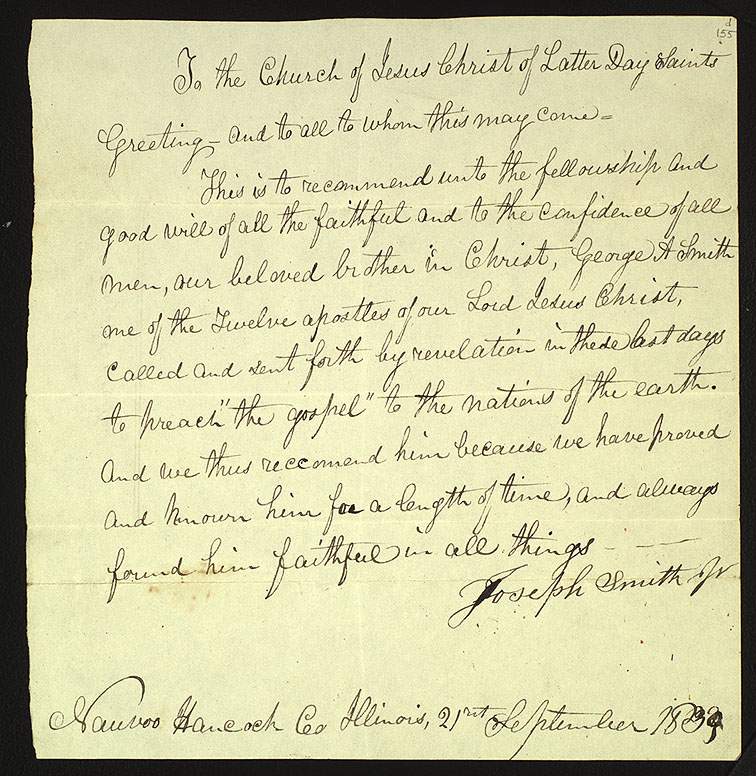 d
155
To the Church of Jesus Christ of Latter Day Saints
Greeting – and to all to whom this may come =
This is to recommend unto the fellowship and
good will of all the faithful and to the confidence of all
men, our beloved brother in Christ, George A Smith
one of the Twelve apostles of our Lord Jesus Christ,
called and sent forth by revelation in these last days
to preach "the gospel" to the nations of the earth.
And we thus reccomend him because we have proved
and known him for a length of time, and always
found him faithful in all things – —
Joseph Smith Jr
Nauvoo Hancock Co Illinois, 21st September 1839